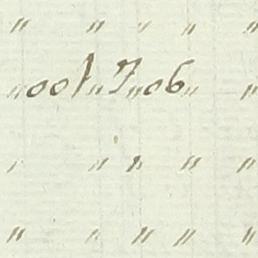 " " " " "
" 001 " 7 " 06 " "
" " " " "
" " " " "